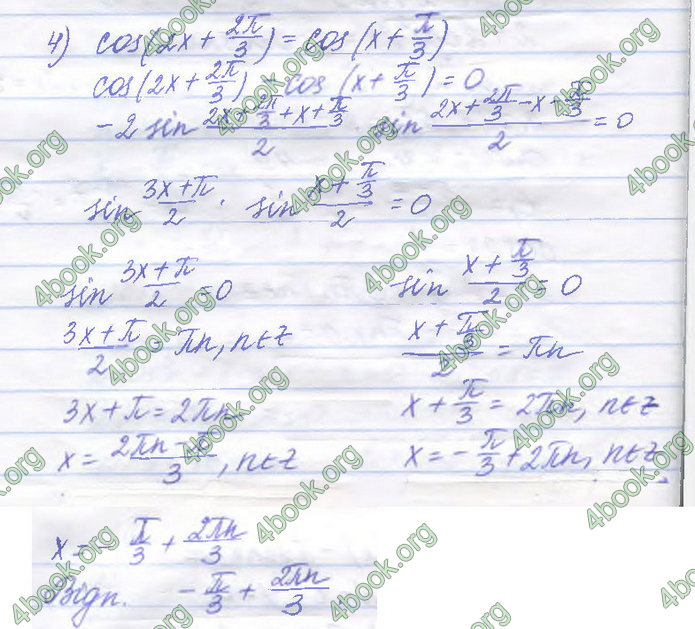 4) cos(2x + 2π/3) = cos(x + π/3)
cos(2x + 2π/3) - cos(x + π/3) = 0
-2 sin (2x + 2π/3 + x + π/3)/2 · sin (2x + 2π/3 - x - π/3)/2 = 0
sin (3x + π)/2 · sin (x + π/3)/2 = 0
sin (3x + π)/2 = 0
(3x + π)/2 = πn, n∈Z
3x + π = 2πn
x = (2πn - π)/3, n∈Z
sin (x + π/3)/2 = 0
(x + π/3)/2 = πn
x + π/3 = 2πn, n∈Z
x = -π/3 + 2πn, n∈Z
x = -π/3 + 2πn/3
Відп. -π/3 + 2πn/3
4book.org